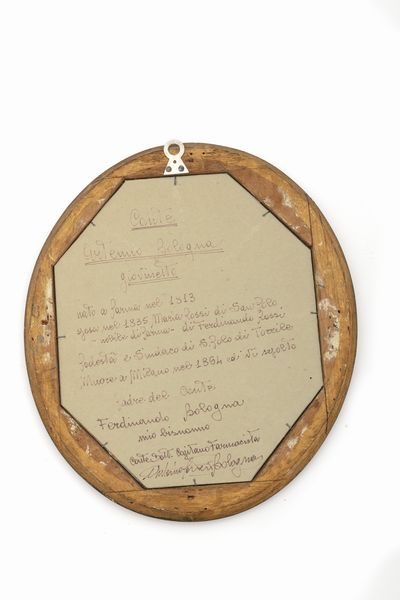 Conte
Antonio Bologna
giovinetto
nato a Parma nel 1813
sposa nel 1835 Maria Rossi di San Polo
nobile di Parma - di Ferdinando Rossi
Podestà e Sindaco di S. Polo di Torrile
Muore a Milano nel 1894 ed ivi sepolto
padre del Conte
Ferdinando Bologna
mio bisnonno
Conte Dott. Capitano Farmacista
Bologna